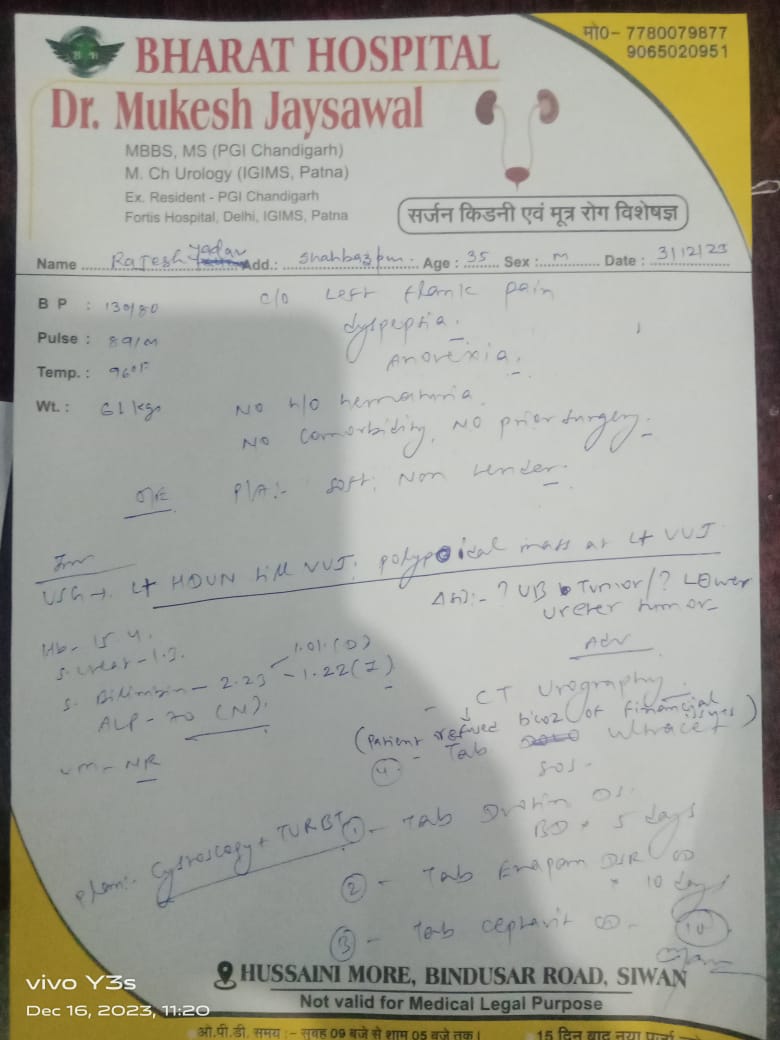 BHARAT HOSPITAL
मो०- 7780079877
9065020951
Dr. Mukesh Jaysawal
MBBS, MS (PGI Chandigarh)
M. Ch Urology (IGIMS, Patna)
Ex. Resident - PGI Chandigarh
Fortis Hospital, Delhi, IGIMS, Patna
सर्जन किडनी एवं मूत्र रोग विशेषज्ञ
Name Rajesh Yadav Add.: Shahbazpur Age : 35 Sex : M Date : 3/12/23
BP : 130/80
c/o Left flank pain
Pulse : 89/m
dyspepsia.
Temp.: 96°F
Anorexia.
Wt.: 61 kgs
NO h/o hematuria.
NO comorbidity, NO prior surgery.
O/E P/A:- soft, Non tender.
Inv
USG → Lt HDUN till VUJ, polypoidal mass at Lt VUJ
Δsis:- ? UB Tumor/? Lower
ureter tumor
Hb- 15.4.
S. creat-1.3.
1.01.(D)
S. Bilirubin - 2.23 - 1.22(I)
ALP-70 (N).
um-NR
Adv
- CT Urography.
(Patient refused bcoz of financial issues)
④ - Tab Ultracet
SOS.
plan:- Cystoscopy + TURBT
① - Tab OS.
BD × 5 days
② - Tab DSR OD
× 10 days
③ - Tab OD -
10
HUSSAINI MORE, BINDUSAR ROAD, SIWAN
Not valid for Medical Legal Purpose
vivo Y3s
Dec 16, 2023, 11:20
ओ.पी.डी. समय :- सुबह 09 बजे से शाम 05 बजे तक।
15 दिन बाद नया पर्जा